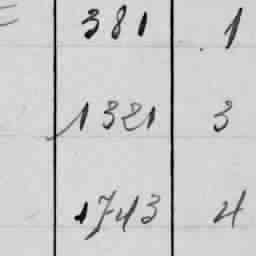 381 1
1321 3
1743 4